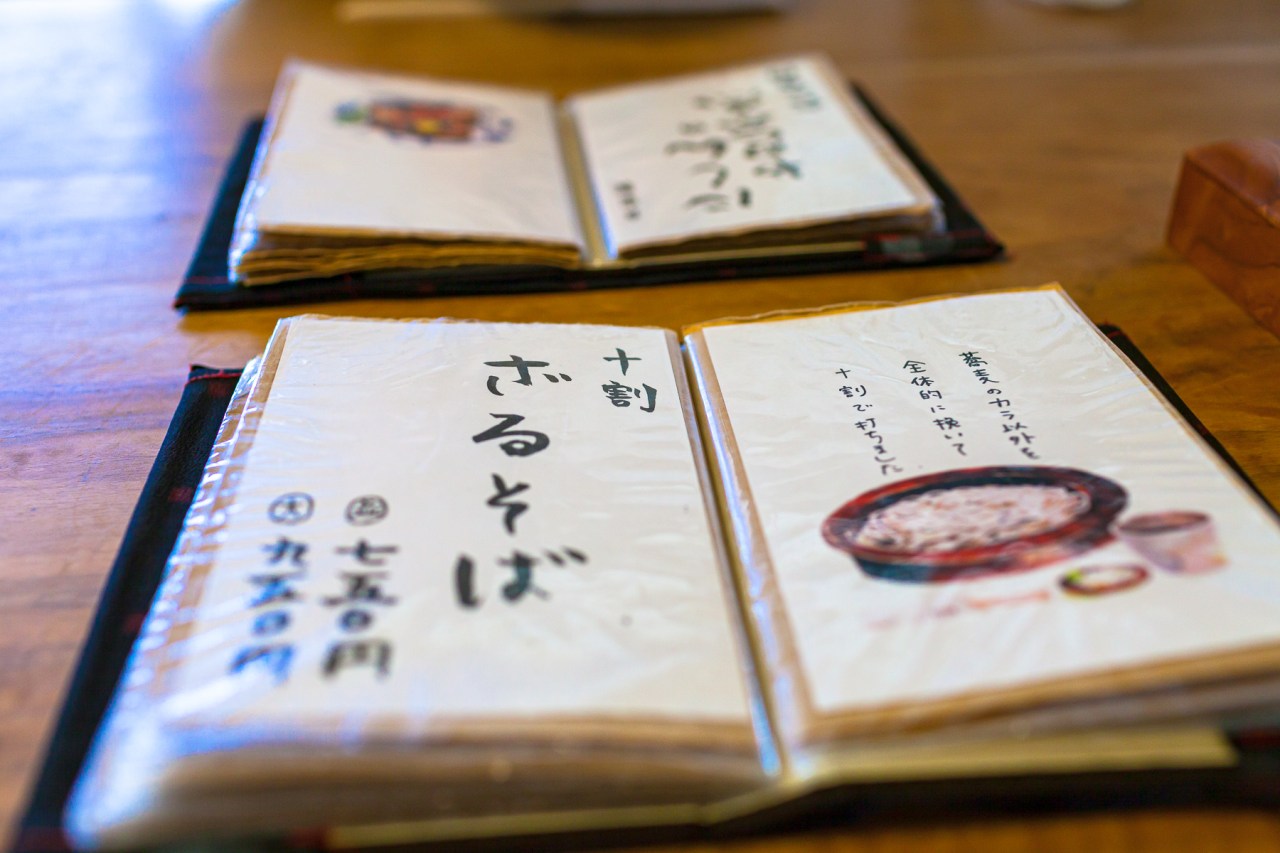 蕎麦のカラ以外を
全体的に挽いて
十割で打ちました
十割
ざるそば
並 七五〇円
大 九五〇円